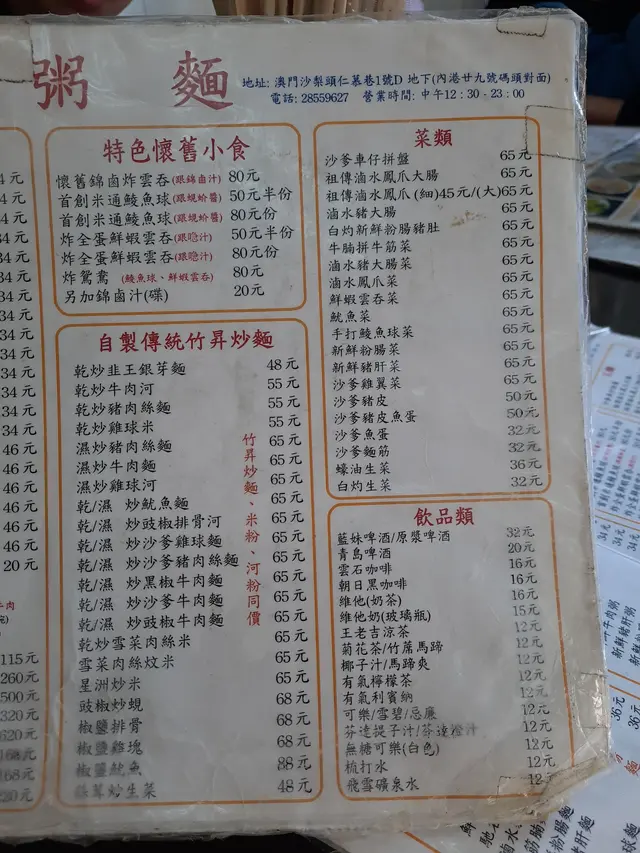 粥 麵
地址: 澳門沙梨頭仁慕巷1號D 地下(內港廿九號碼頭對面)
電話: 28559627 營業時間: 中午12:30 - 23:00
特色懷舊小食
懷舊錦鹵炸雲吞(跟錦鹵汁) 80元
首創米通鯪魚球(跟蜆蚧醬) 50元半份
首創米通鯪魚球(跟蜆蚧醬) 80元份
炸全蛋鮮蝦雲吞(跟喼汁) 50元半份
炸全蛋鮮蝦雲吞(跟喼汁) 80元份
炸鴛鴦 (鯪魚球、鮮蝦雲吞) 80元
另加錦鹵汁(碟) 20元
自製傳統竹昇炒麵
乾炒韭王銀芽麵 48元
乾炒牛肉河 55元
乾炒豬肉絲麵 55元
乾炒雞球米 55元
濕炒豬肉絲麵 65元
濕炒牛肉麵 65元
濕炒雞球河 65元
乾/濕 炒魷魚麵 65元
乾/濕 炒豉椒排骨河 65元
乾/濕 炒沙爹雞球麵 65元
乾/濕 炒沙爹豬肉絲麵 65元
乾/濕 炒黑椒牛肉麵 65元
乾/濕 炒沙爹牛肉麵 65元
乾/濕 炒豉椒牛肉麵 65元
乾炒雪菜肉絲米 65元
雪菜肉絲炆米 65元
星洲炒米 65元
豉椒炒蜆 68元
椒鹽排骨 68元
椒鹽雞塊 68元
椒鹽魷魚 88元
生菜 48元
竹昇炒麵、米粉、河粉同價
菜類
沙爹車仔拼盤 65元
祖傳滷水鳳爪大腸 65元
祖傳滷水鳳爪 (細)45元/(大)65元
滷水豬大腸 65元
白灼新鮮粉腸豬肚 65元
牛腩拼牛筋菜 65元
滷水豬大腸菜 65元
滷水鳳爪菜 65元
鮮蝦雲吞菜 65元
魷魚菜 65元
手打鯪魚球菜 65元
新鮮粉腸菜 65元
新鮮豬肝菜 65元
沙爹雞翼菜 65元
沙爹豬皮 50元
沙爹豬皮魚蛋 50元
沙爹魚蛋 32元
沙爹麵筋 32元
蠔油生菜 36元
白灼生菜 32元
飲品類
藍妹啤酒/原漿啤酒 32元
青島啤酒 20元
雲石咖啡 16元
朝日黑咖啡 16元
維他(奶茶) 16元
維他奶(玻璃瓶) 15元
王老吉涼茶 12元
菊花茶/竹蔗馬蹄 12元
椰子汁/馬蹄爽 12元
有氣檸檬茶 12元
有氣利賓納 12元
可樂/雪碧/忌廉 12元
芬達提子汁/芬達橙汁 12元
無糖可樂(白色) 12元
梳打水 12元
飛雪礦泉水 12元
4元
34元
34元
34元
34元
34元
34元
46元
46元
46元
46元
46元
20元
115元
260元
500元
320元
620元
168元
168元
36元
36元